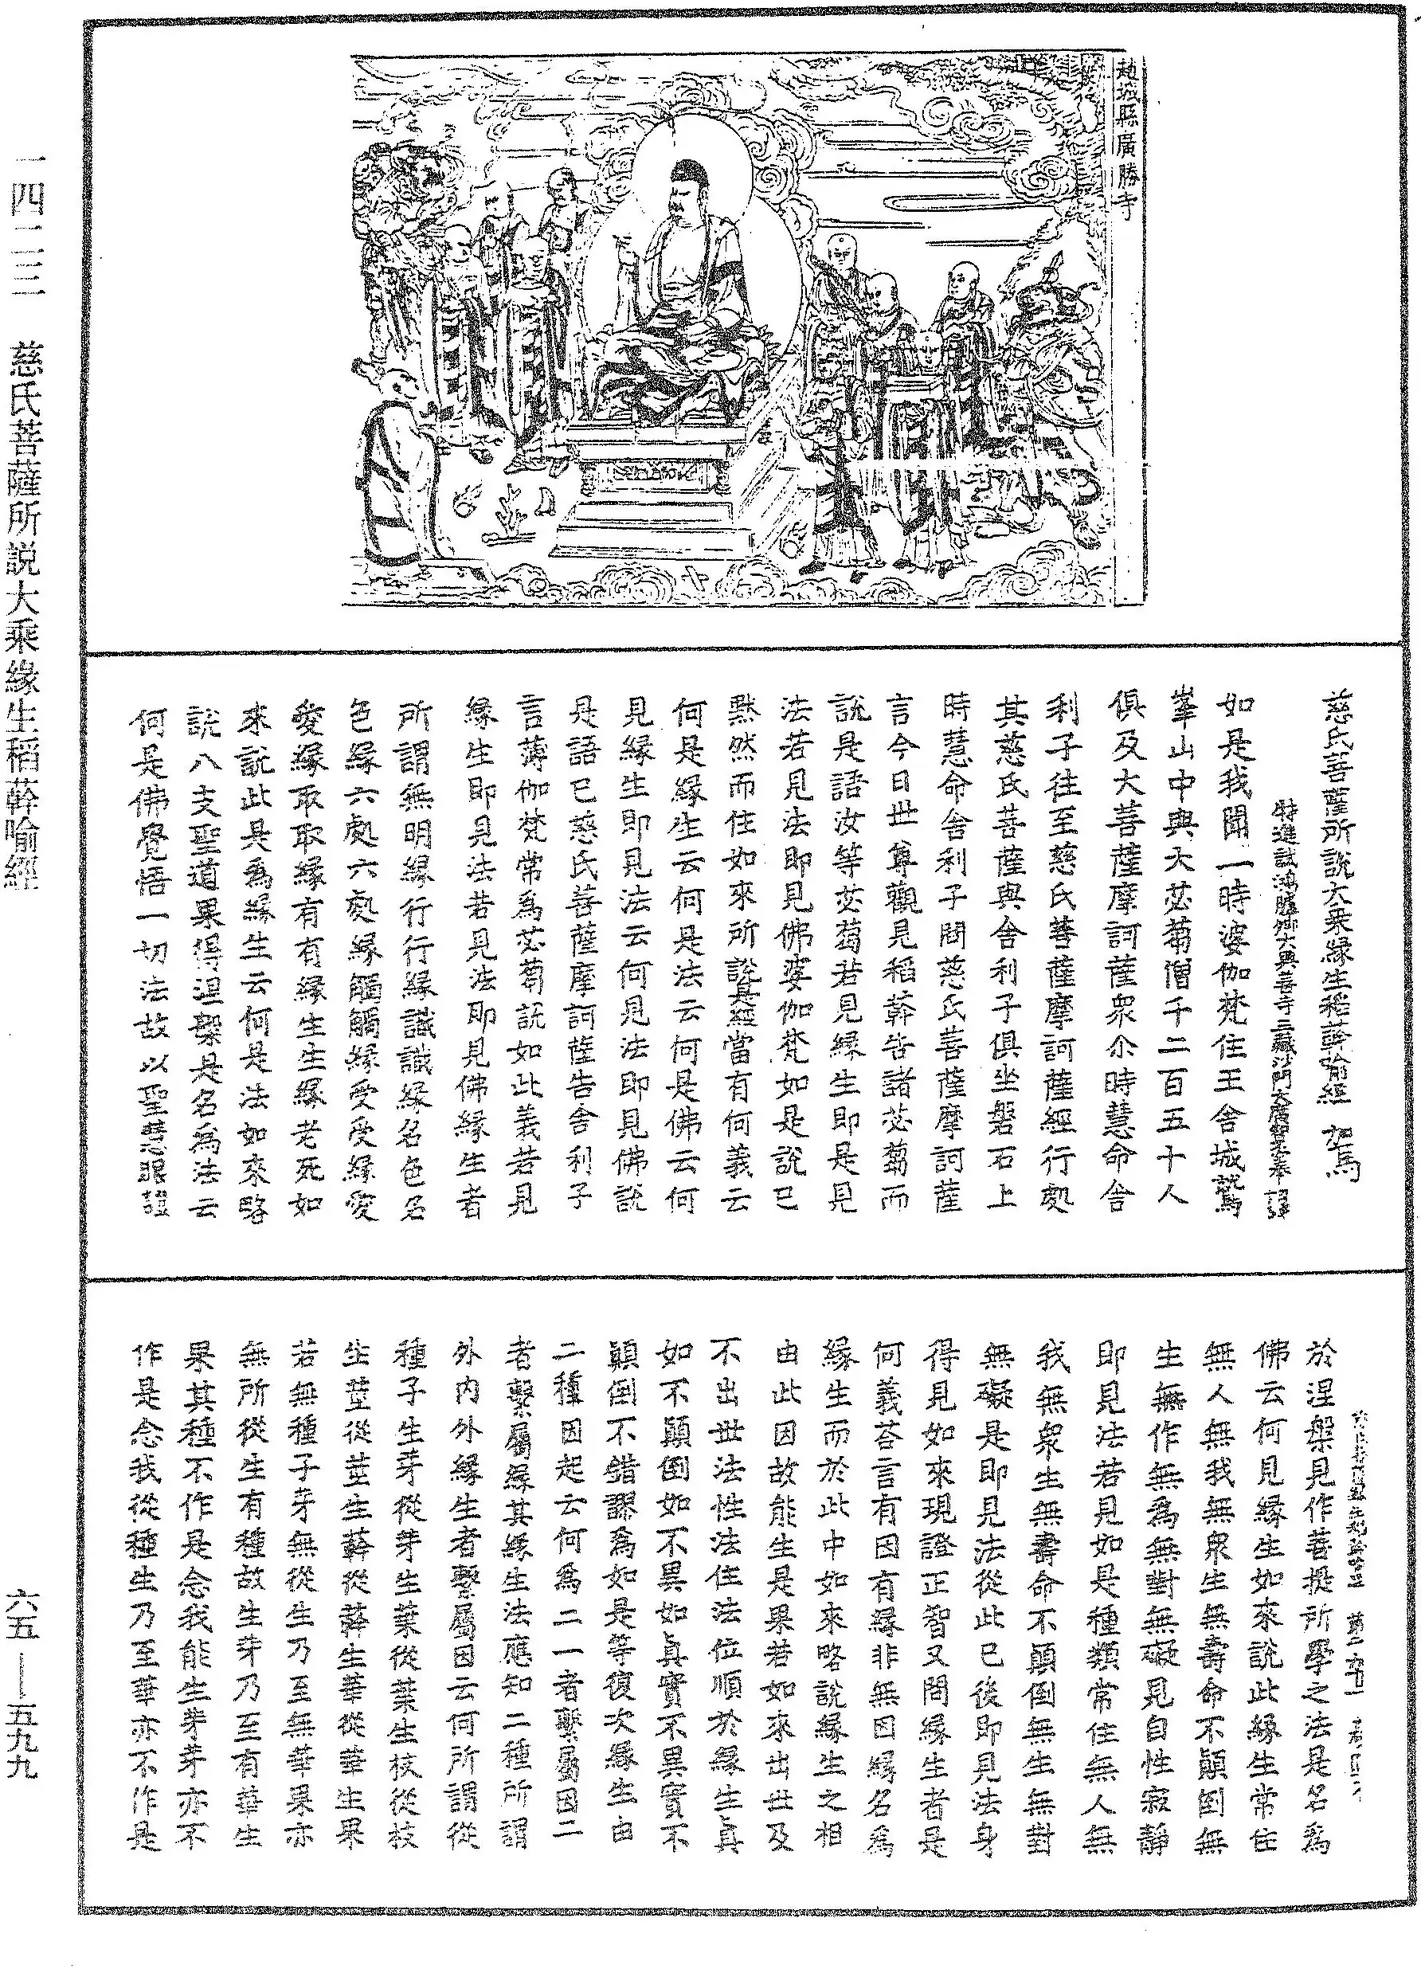 趙城縣廣勝寺
慈氏菩薩所說大乘緣生稻𦼮喻經 如馬
特進試鴻臚卿大興善寺三藏沙門大廣智不空奉 詔譯
如是我聞一時婆伽梵住王舍城鷲
峯山中與大苾蒭僧千二百五十人
俱及大菩薩摩訶薩眾尒時慧命舍
利子往至慈氏菩薩摩訶薩經行處
其慈氏菩薩與舍利子俱坐磐石上
時慧命舍利子問慈氏菩薩摩訶薩
言今日世尊觀見稻𦼮告諸苾蒭而
說是語汝等苾蒭若見緣生即是見
法若見法即見佛婆伽梵如是說已
默然而住如來所說是經當有何義云
何是緣生云何是法云何是佛云何
見緣生即見法云何見法即見佛說
是語已慈氏菩薩摩訶薩告舍利子
言薄伽梵常為苾蒭說如此義若見
緣生即見法若見法即見佛緣生者
所謂無明緣行行緣識識緣名色名
色緣六處六處緣觸觸緣受受緣愛
愛緣取取緣有有緣生生緣老死如
來說此是為緣生云何是法如來略
說八支聖道果得涅槃是名為法云
何是佛覺悟一切法故以聖慧眼證
於涅槃見作菩提所學之法是名為
佛云何見緣生如來說此緣生常住
無人無我無眾生無壽命不顛倒無
生無作無為無對無礙見自性寂靜
即見法若見如是種類常住無人無
我無眾生無壽命不顛倒無生無對
無礙是即見法從此已後即見法身
得見如來現證正智又問緣生者是
何義荅言有因有緣非無因緣名為
緣生而於此中如來略說緣生之相
由此因故能生是果若如來出世及
不出世法性法住法位順於緣生真
如不顛倒如不異如真實不異實不
顛倒不錯謬為如是等復次緣生由
二種因起云何為二一者繫屬因二
者繫屬緣其緣生法應知二種所謂
外內外緣生者繫屬因云何所謂從
種子生芽從芽生葉從葉生枝從枝
生莖從莖生𦼮從𦼮生華從華生果
若無種子芽無從生乃至無華果亦
無所從生有種故生芽乃至有華生
果其種不作是念我能生芽芽亦不
作是念我從種生乃至華亦不作是
一四二三 慈氏菩薩所說大乘緣生稻𦼮喻經
六五—五九九